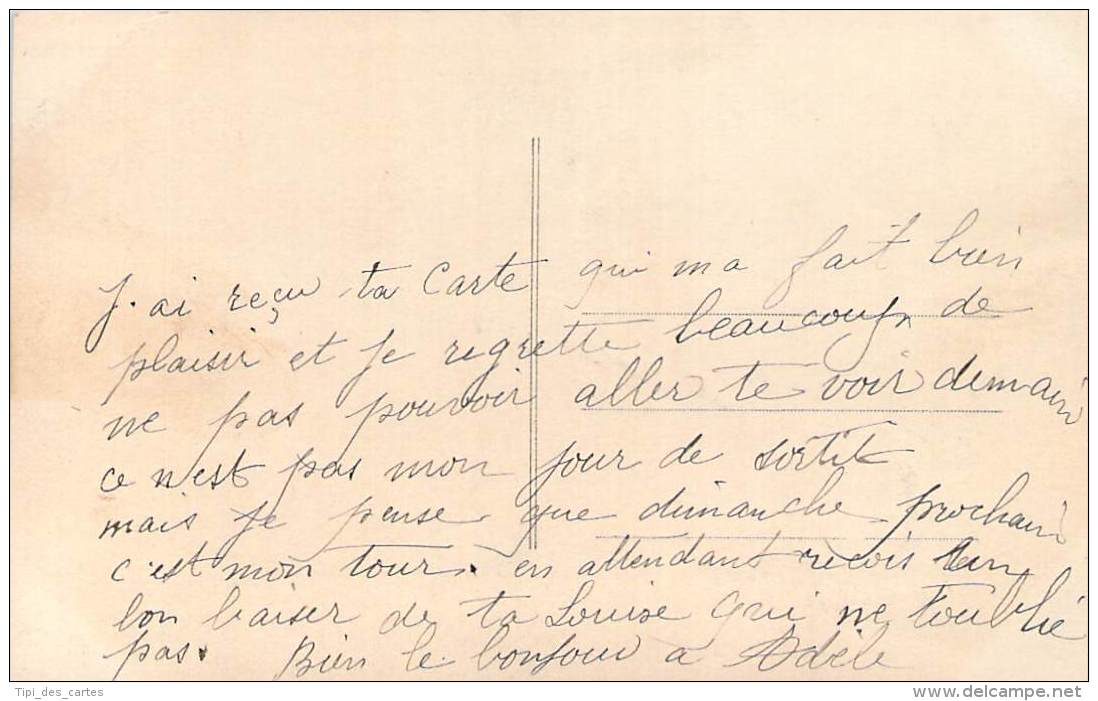 J. ai reçu ta carte qui ma fait bien
plaisir et je regrette beaucoup de
ne pas pouvoir aller te voir demain
ce n'est pas mon jour de sortit
mais je pense que dimanche prochain
c'est mon tour. en attendant recois un
bon baiser de ta Louise qui ne t'oublie
pas. Bien le bonjour a Adèle
Tipi_des_cartes
www.delcampe.net